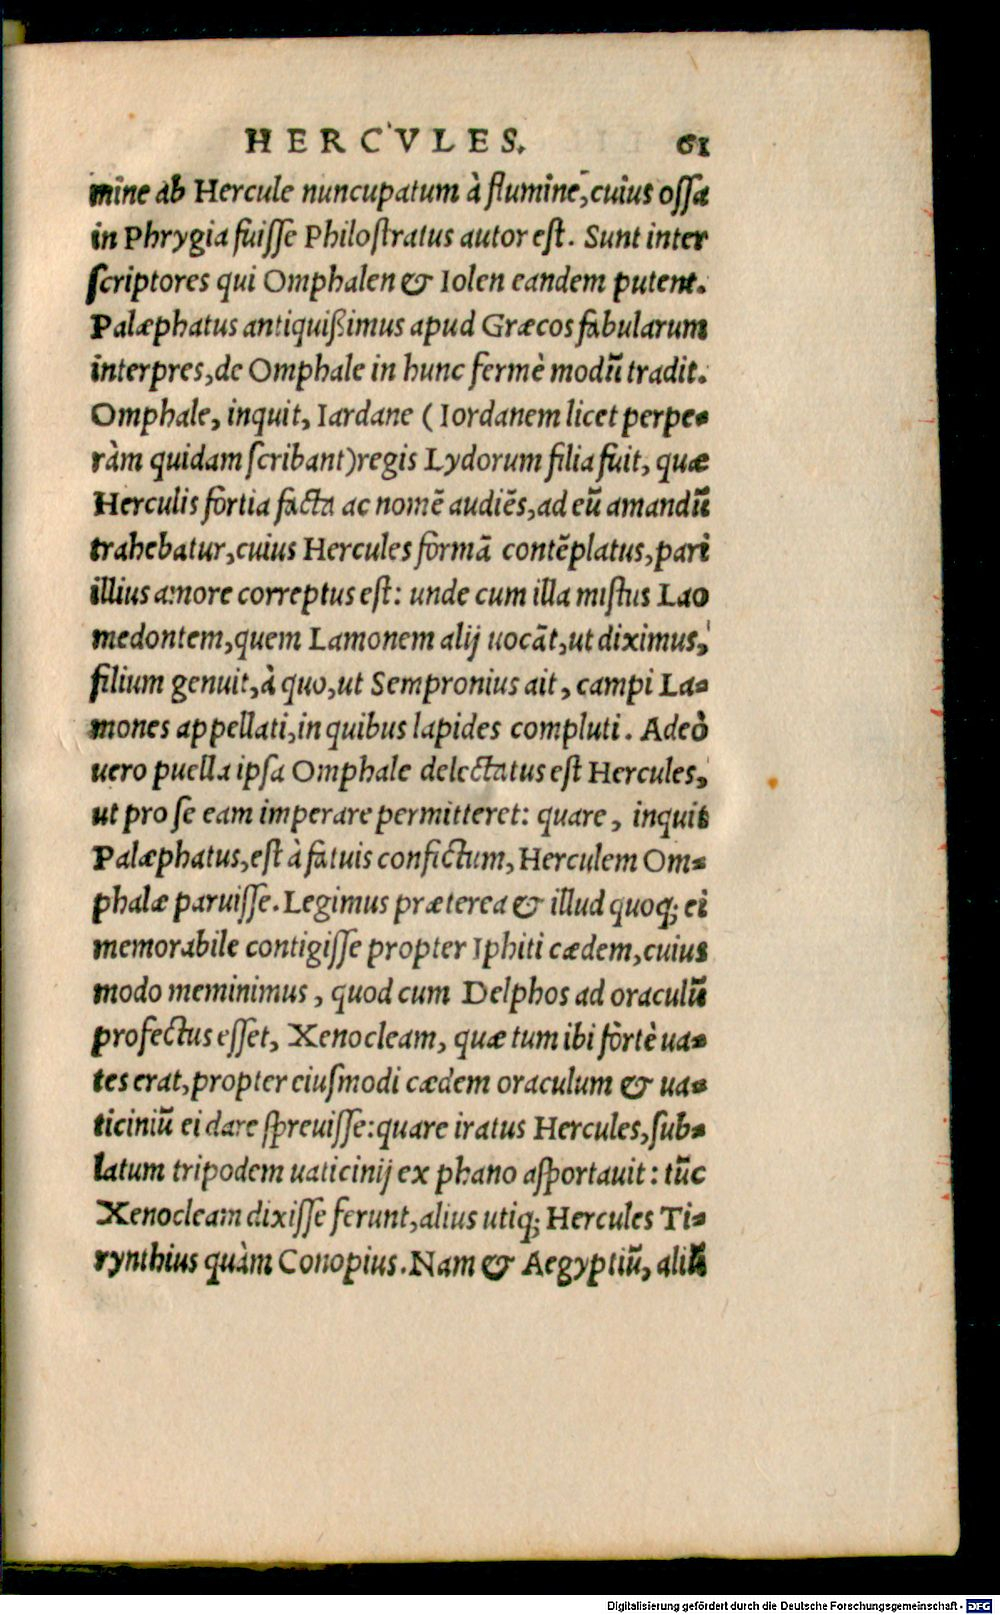 HERCVLES. 61
mine ab Hercule nuncupatum à flumine, cuius ossa
in Phrygia fuisse Philostratus autor est. Sunt inter
scriptores qui Omphalen & Iolen eandem putent.
Palæphatus antiquißimus apud Græcos fabularum
interpres, de Omphale in hunc fermè modũ tradit.
Omphale, inquit, Iardane (Iordanem licet perpe-
ràm quidam scribant) regis Lydorum filia fuit, quæ
Herculis fortia facta ac nomẽ audiẽs, ad eũ amandũ
trahebatur, cuius Hercules formã contẽplatus, pari
illius amore correptus est: unde cum illa mistus Lao
medontem, quem Lamonem alij uocãt, ut diximus,
filium genuit, à quo, ut Sempronius ait, campi La-
mones appellati, in quibus lapides compluti. Adeò
uero puella ipsa Omphale delectatus est Hercules,
ut pro se eam imperare permitteret: quare, inquit
Palæphatus, est à fatuis confictum, Herculem Om-
phalæ paruisse. Legimus præterea & illud quoq; ei
memorabile contigisse propter Iphiti cædem, cuius
modo meminimus, quod cum Delphos ad oraculũ
profectus esset, Xenocleam, quæ tum ibi fortè ua-
tes erat, propter eiusmodi cædem oraculum & ua-
ticiniũ ei dare spreuisse: quare iratus Hercules, sub-
latum tripodem uaticinij ex phano asportauit: tũc
Xenocleam dixisse ferunt, alius utiq; Hercules Ti-
rynthius quàm Conopius. Nam & Aegyptiũ, aliũ
Digitalisierung gefördert durch die Deutsche Forschungsgemeinschaft - DFG